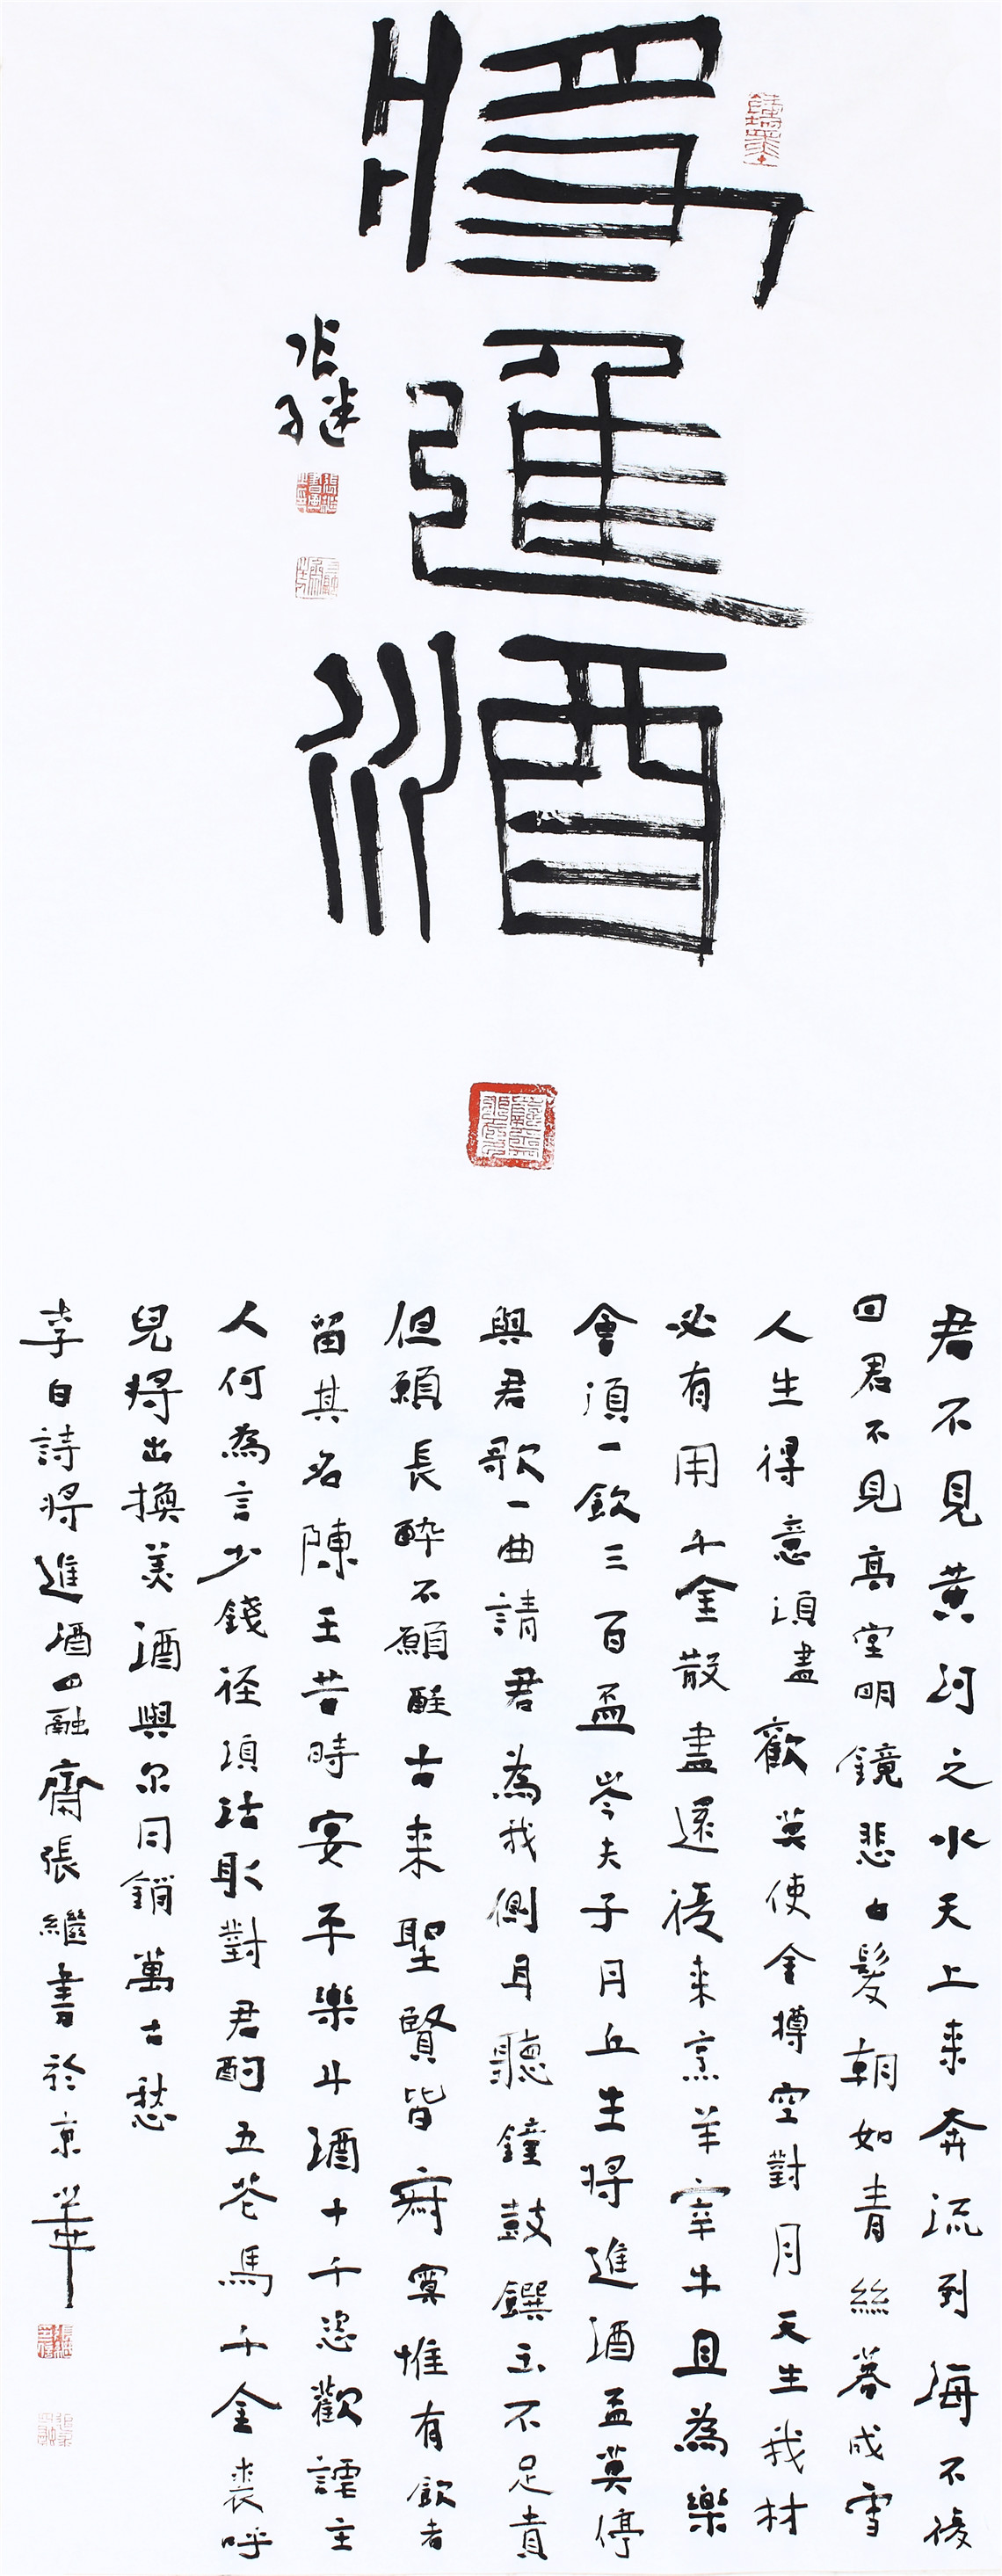 將進酒
張繼
君不見黃河之水天上來奔流到海不復
回君不見高堂明鏡悲白髮朝如青絲暮成雪
人生得意須盡歡莫使金樽空對月天生我材
必有用千金散盡還復來烹羊宰牛且為樂
會須一飲三百盃岑夫子丹丘生將進酒盃莫停
與君歌一曲請君為我側耳聽鐘鼓饌玉不足貴
但願長醉不願醒古來聖賢皆寂寞惟有飲者
留其名陳王昔時宴平樂斗酒十千恣歡謔主
人何為言少錢徑須沽取對君酌五花馬千金裘呼
兒將出換美酒與尔同銷萬古愁
李白詩將進酒四融齋張繼書於京華